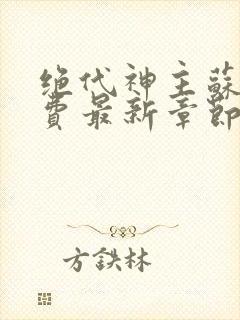 绝代神主蘇
費最新章節
方鉄林